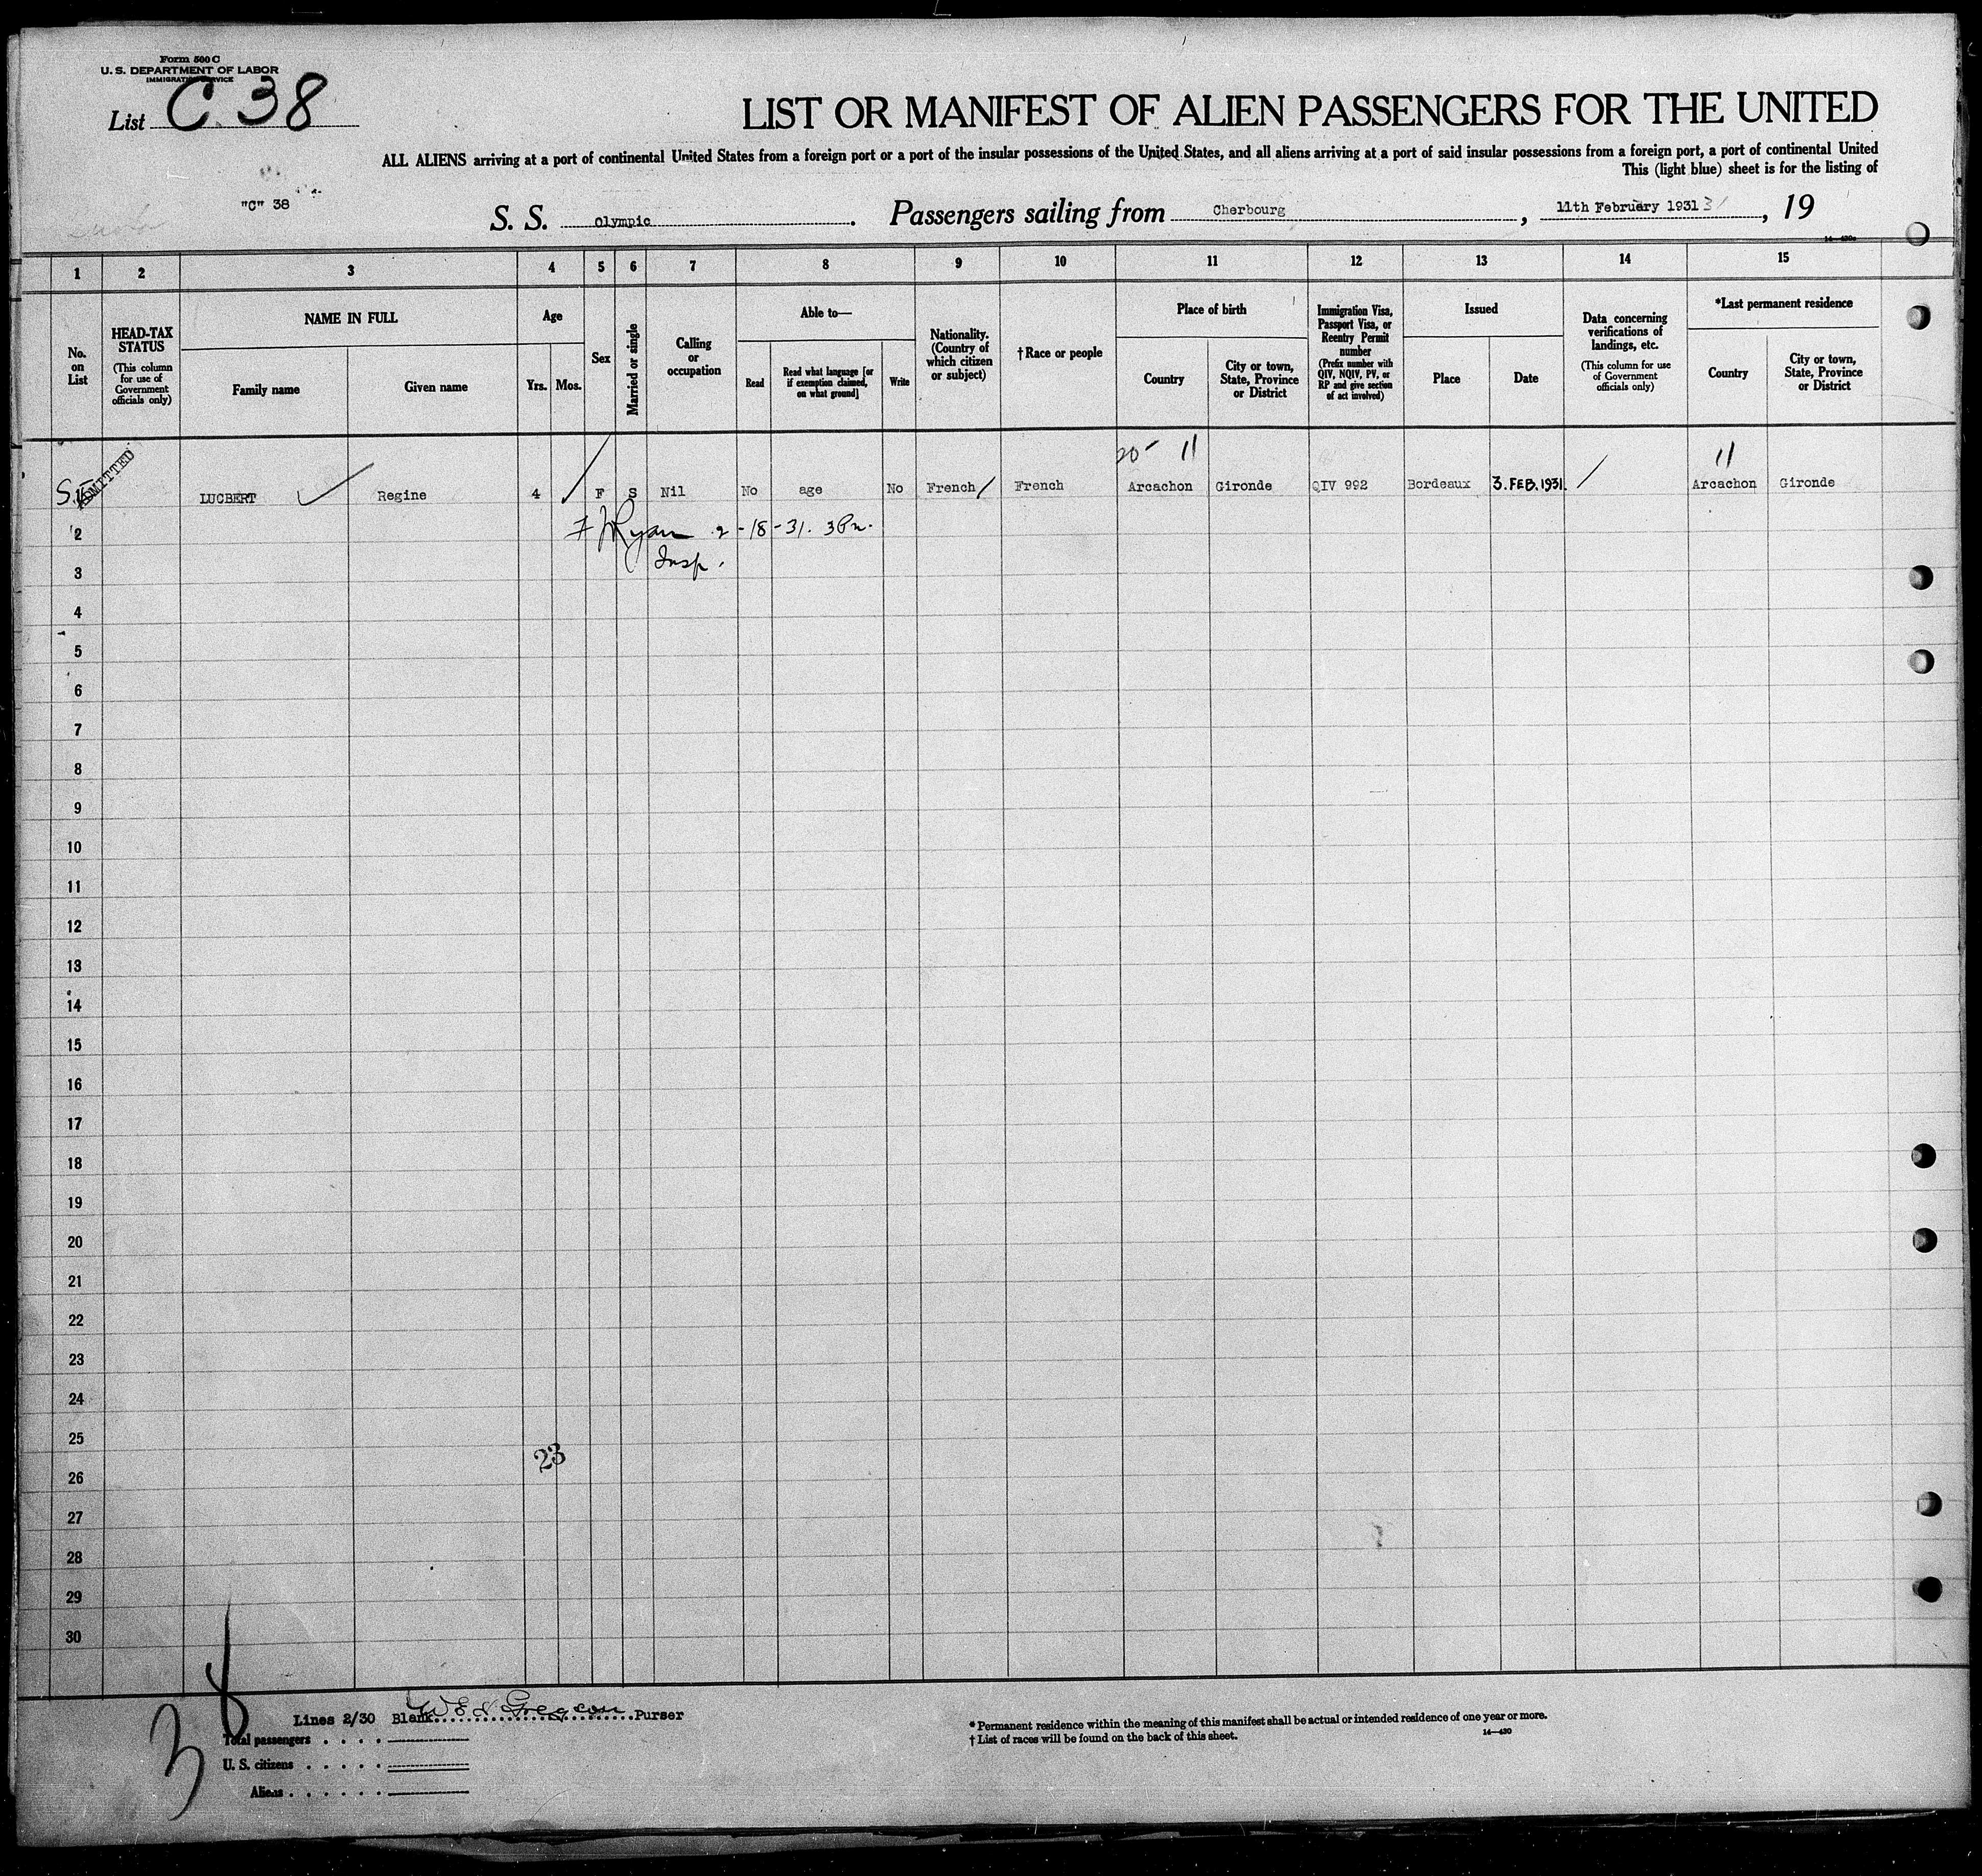 Form 500 C
U. S. DEPARTMENT OF LABOR
IMMIGRATION SERVICE
List C 38
LIST OR MANIFEST OF ALIEN PASSENGERS FOR THE UNITED
ALL ALIENS arriving at a port of continental United States from a foreign port or a port of the insular possessions of the United States, and all aliens arriving at a port of said insular possessions from a foreign port, a port of continental United
This (light blue) sheet is for the listing of
"C" 38
S. S. Olympic. Passengers sailing from Cherbourg, 11th February 1931 31, 19
14—430a
1 2 3 4 5 6 7 8 9 10 11 12 13 14 15
No. on List
HEAD-TAX STATUS (This column for use of Government officials only)
NAME IN FULL
Family name Given name
Age
Yrs. Mos.
Sex
Married or single
Calling or occupation
Able to—
Read Read what language [or if exemption claimed, on what ground] Write
Nationality. (Country of which citizen or subject)
† Race or people
Place of birth
Country City or town, State, Province or District
Immigration Visa, Passport Visa, or Reentry Permit number (Prefix number with QIV, NQIV, PV, or RP and give section of act involved)
Issued
Place Date
Data concerning verifications of landings, etc. (This column for use of Government officials only)
*Last permanent residence
Country City or town, State, Province or District
20- 11 11
ADMITTED LUCBERT Regine 4 F S Nil No age No French French Arcachon Gironde QIV 992 Bordeaux 3. FEB. 1931. Arcachon Gironde
2 F J Ryan 2-18-31. 3 Pm.
Insp.
3
4
5
6
7
8
9
10
11
12
13
14
15
16
17
18
19
20
21
22
23
24
25
23
26
27
28
29
30
38
Lines 2/30 Blank Purser
Total passengers
U. S. citizens
Aliens
* Permanent residence within the meaning of this manifest shall be actual or intended residence of one year or more.
† List of races will be found on the back of this sheet.
14—430